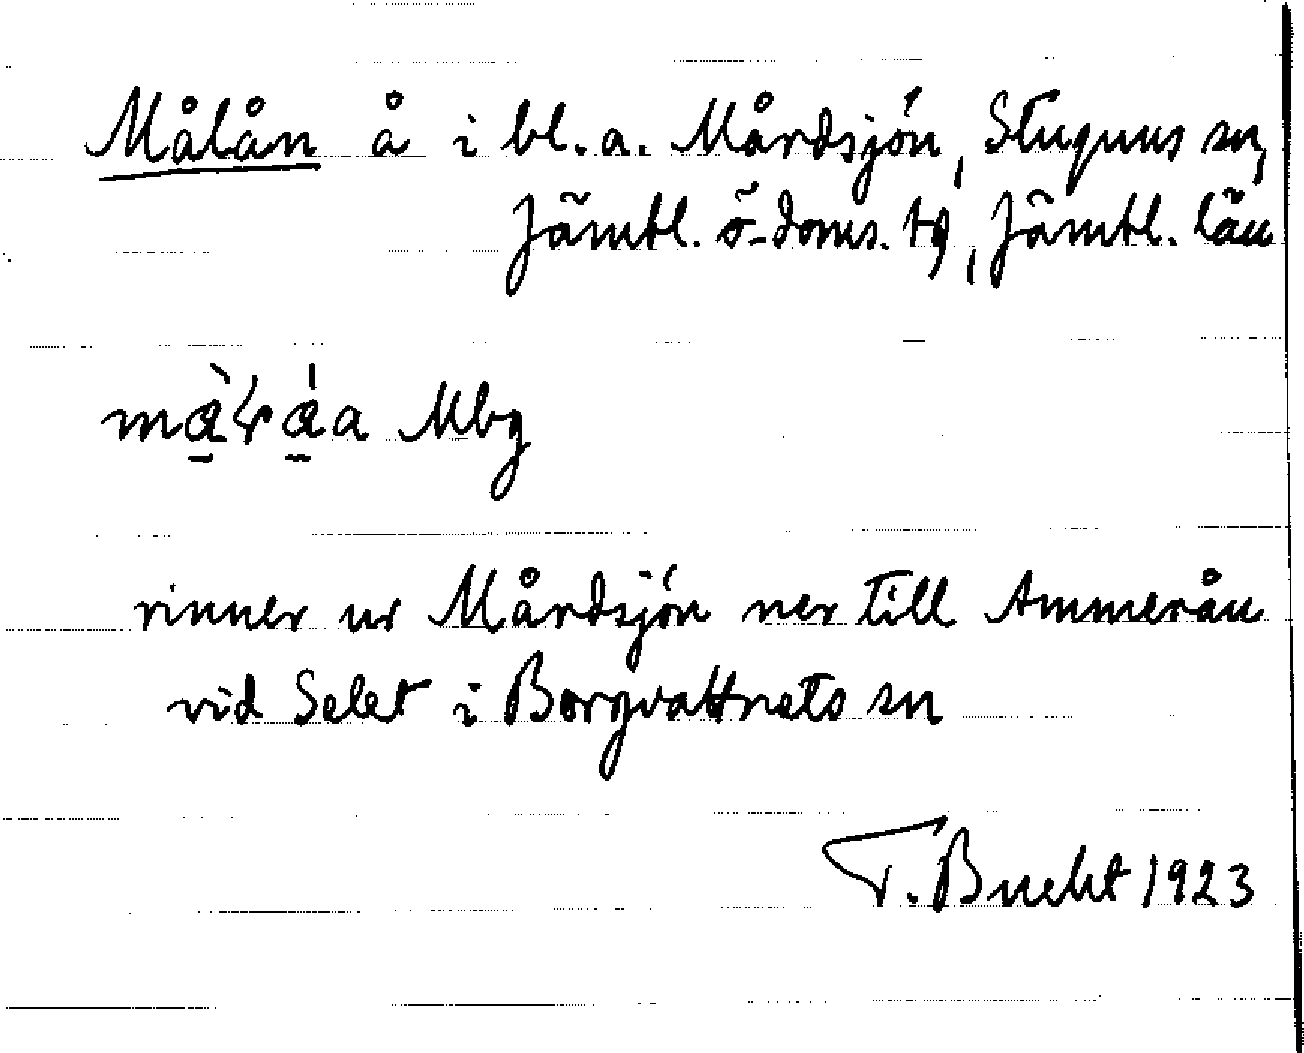 Målån å i bl.a. Mårdsjön, Stuguns sn,
Jämtl. ö. doms. tg, Jämtl. län
Mbg
rinner ur Mårdsjön ner till Ammerån
vid Selet i Borgvattnets sn
T. Bucht 1923